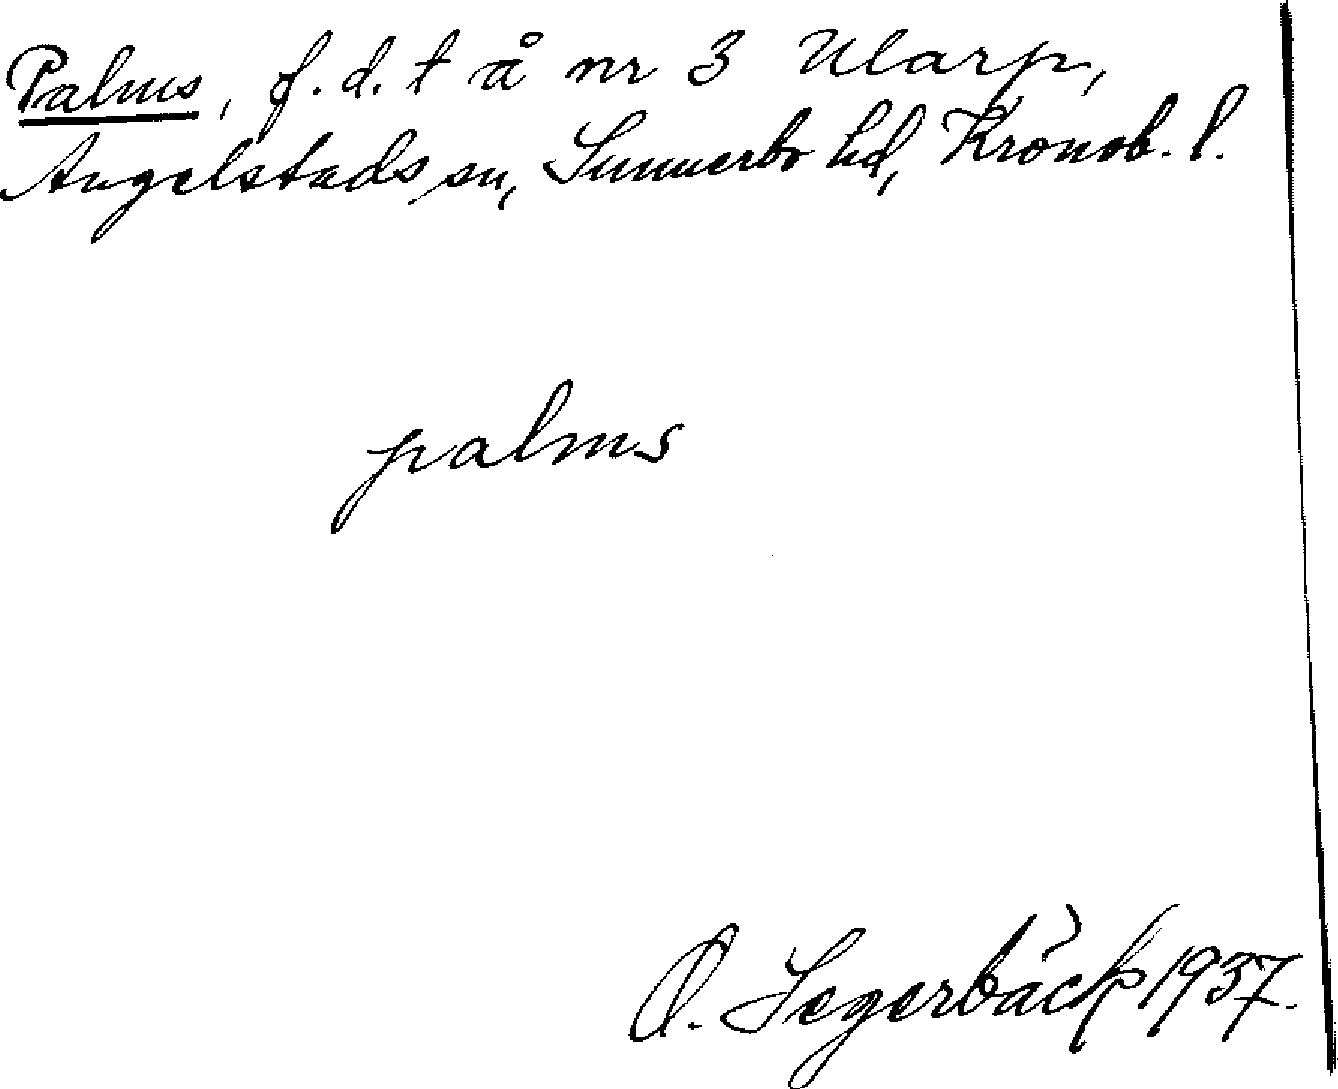 Palms, f.d.t å nr 3 Ularp,
Angelstads sn, Sunnerbo hd, Kronob. l.
palms
O. Segerbäck 1937.